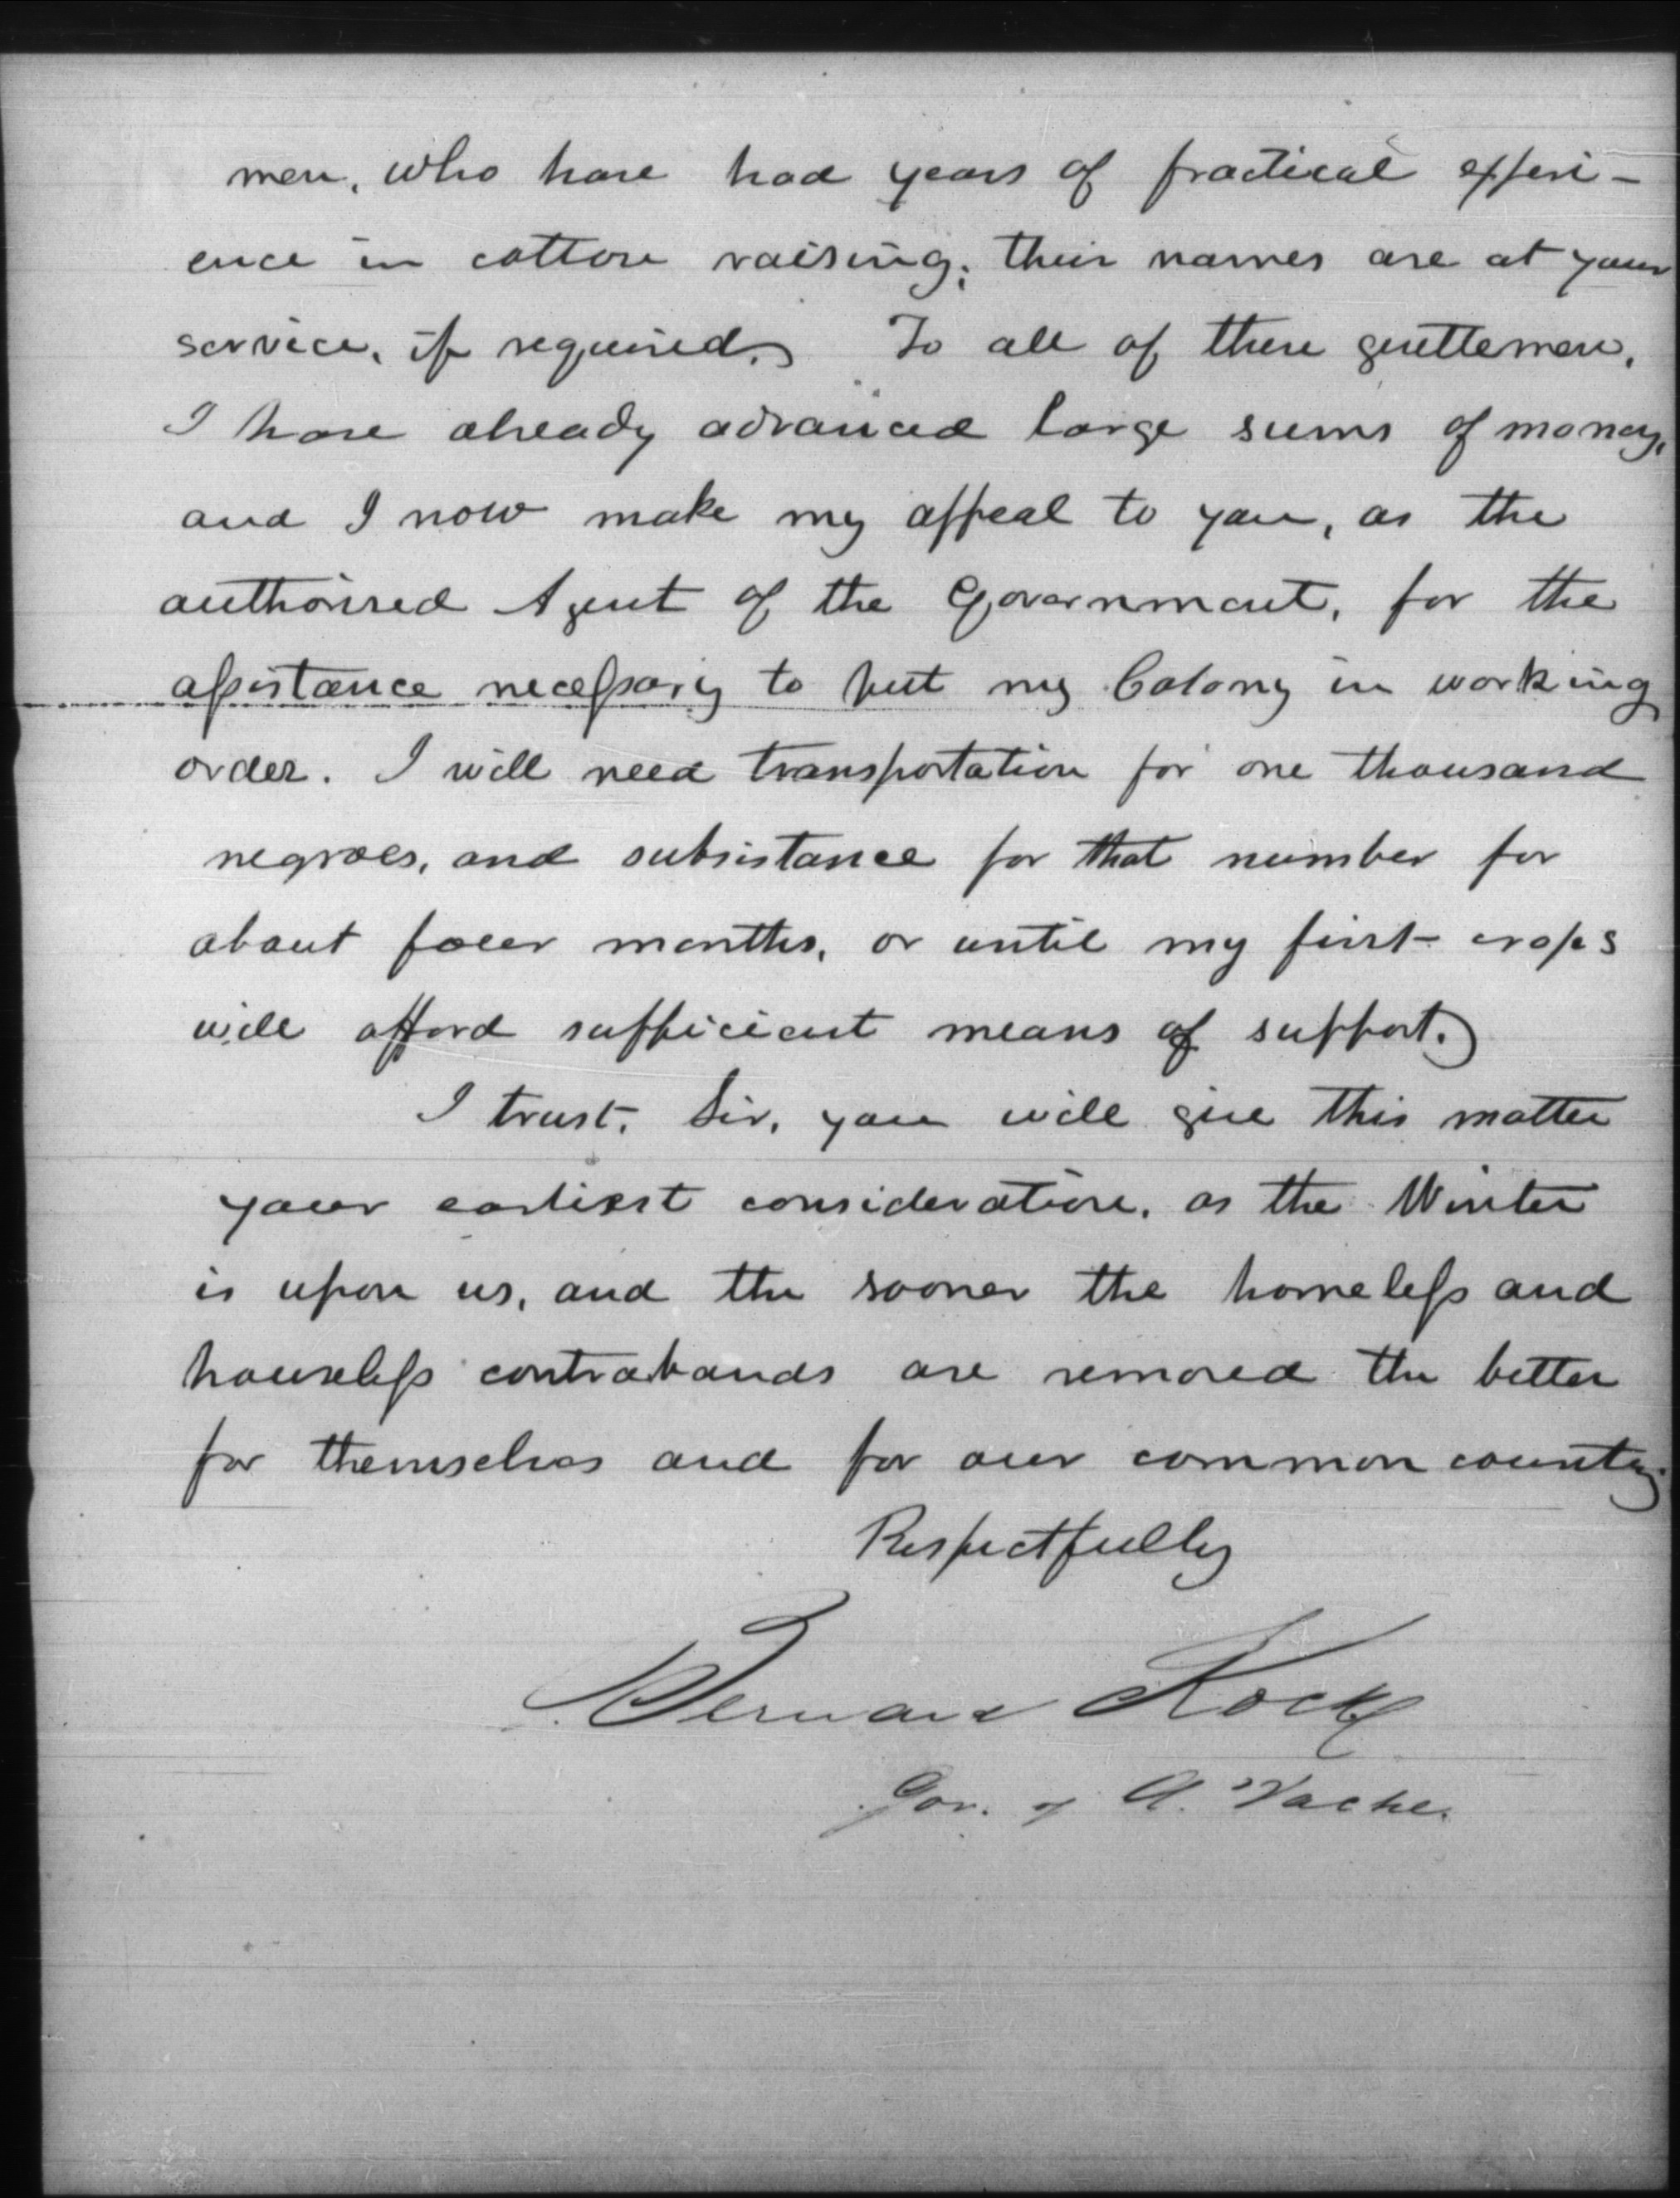 men, who have had years of practical experi-
ence in cotton raising; their names are at your
service, if required. To all of these gentlemen,
I have already advanced large sums of money,
and I now make my appeal to you, as the
authorised Agent of the Government, for the
assistance necessary to put my Colony in working
order. I will need transportation for one thousand
negroes, and subsistance for that number for
about four months, or until my first crops
will afford sufficient means of support.
I trust, Sir, you will give this matter
your earliest consideration, as the Winter
is upon us, and the sooner the homeless and
houseless contrabands are removed the better
for themselves and for our common country.
Respectfully
Bernard Kock
Gov. of A. Vache.